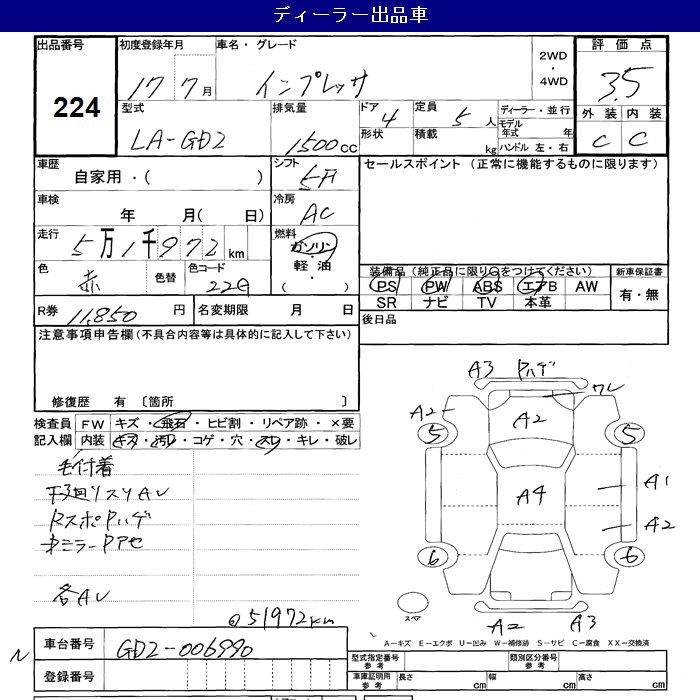 ディーラー出品車
出品番号
224
初度登録年月
17 7 月
車名・グレード
インプレッサ
2WD
・
4WD
評 価 点
3.5
外 装 内 装
C C
型式
LA-GD2
排気量
1500 cc
ドア 4
形状
定員 5 人
積載 kg
ディーラー・並行
モデル
年式 年
ハンドル 左・右
車歴
自家用・( )
シフト
5F
セールスポイント (正常に機能するものに限ります)
車検
年 月( 日)
冷房
AC
走行
5万1千972 km
燃料
ガソリン
・
軽 油
( )
色
赤
色替
色コード
22G
装備品 (純正品に限り○をつけてください)
PS PW ABS エアB AW
SR ナビ TV 本革
新車保証書
有・無
R券 11,850 円
名変期限 月 日
後日品
注意事項申告欄(不具合内容等は具体的に記入して下さい)
修復歴 有 〔箇所 〕
検査員
記入欄
FW キズ・飛石・ヒビ割・リペア跡・×要
内装 キズ・汚レ・コゲ・穴・スレ・キレ・破レ
毛付着
下廻リスリAU
RスポPハゲ
中ミラーPアセ
各AU
51972km
A3 Pハゲ
ワレ
A2 A2
5 5
A4 A1
A2
6 6
スペア
A2 A3
A-キズ E-エクボ U-凹み W-補修跡 S-サビ C-腐食 XX-交換済
N
車台番号 GD2-006990
登録番号
型式指定番号
参考
類別区分番号
参考
車庫証明用
参考
長さ cm 幅 cm 高さ cm